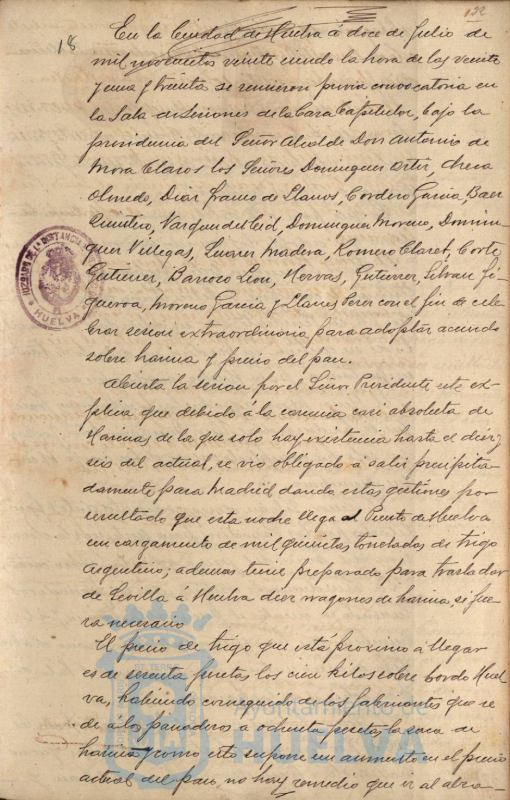 122
18
En la Ciudad de Huelva á doce de Julio de
mil novecientos veinte siendo la hora de las veinte
y una y treinta se reunieron previa convocatoria en
la Sala de Sesiones de la Casa Capitular, bajo la
presidencia del Señor Alcalde Don Antonio de
Mora Claros los Señores Dominguez Ortiz, Checa
Olmedo, Diaz Franco de Llanos, Cordero Garcia, Baez
Quintero, Vazquez del Cid, Dominguez Moreno, Domin-
guez Villegas, Suarez Madera, Romero Claret, Corto
Gutierrez, Barroso Leon, Hervas, Gutierrez, Silvan Fi-
gueroa, Moreno Garcia y Llanes Perez con el fin de cele-
brar sesion extraordinaria para adoptar acuerdo
sobre harina y precio del pan.
Abierta la sesion por el Señor Presidente este ex-
plica que debido á la carencia casi absoluta de
Harinas de la que solo hay existencia hasta el diez y
seis del actual, se vio obligado á salir precipita-
damente para Madrid dando estas gestiones por
resultado que esta noche llega al Puerto de Huelva
un cargamento de mil quinientas toneladas de trigo
Argentino; ademas tiene preparado para trasladar
de Sevilla á Huelva diez wagones de harina, si fue-
ra necesario
El precio de trigo que está proximo á llegar
es de sesenta pesetas los cien kilos sobre bordo Huel-
va, habiendo conseguido de los fabricantes que se
dé á los panaderos a ochenta pesetas la saca de
harina y como esto supone un aumento en el precio
actual del pan, no hay remedio que ir al alza-
JUZGADO DE 1ª INSTANCIA
HUELVA
Ayuntamiento de
HUELVA